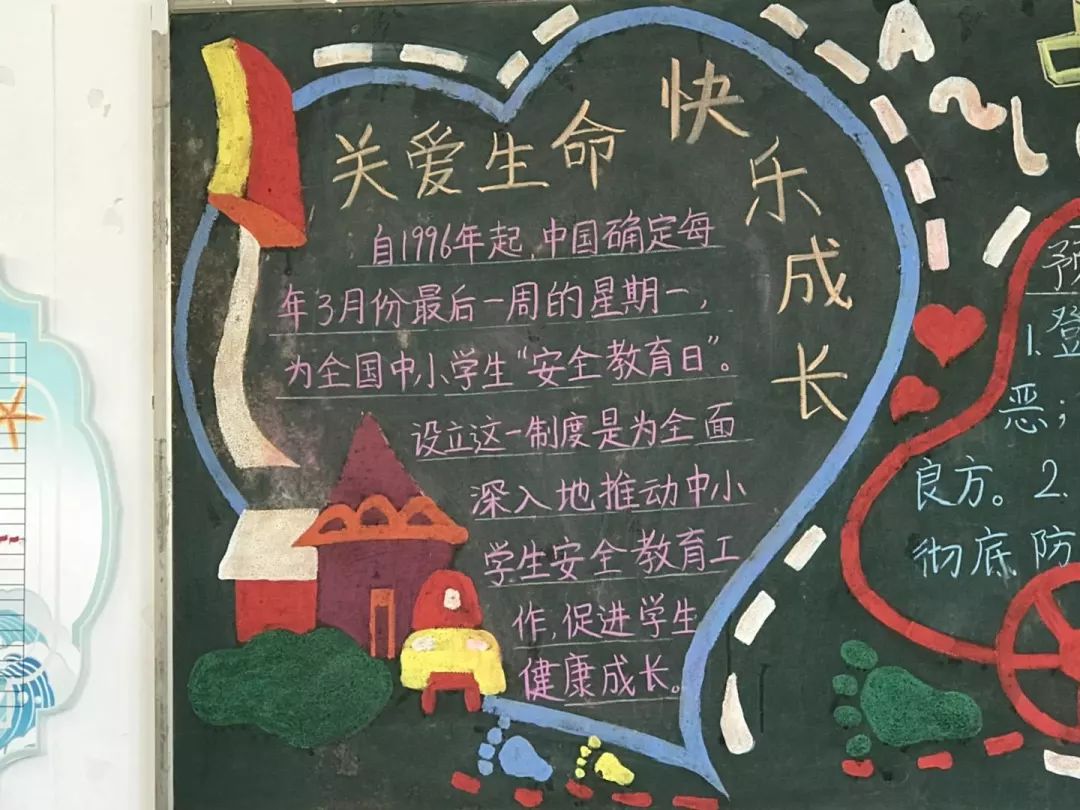 关爱生命 快乐成长
自1996年起,中国确定每
年3月份最后一周的星期一,
为全国中小学生“安全教育日”。
设立这一制度是为全面
深入地推动中小
学生安全教育工
作,促进学生
健康成长。
1.登
恶;
良方。2.
彻底防